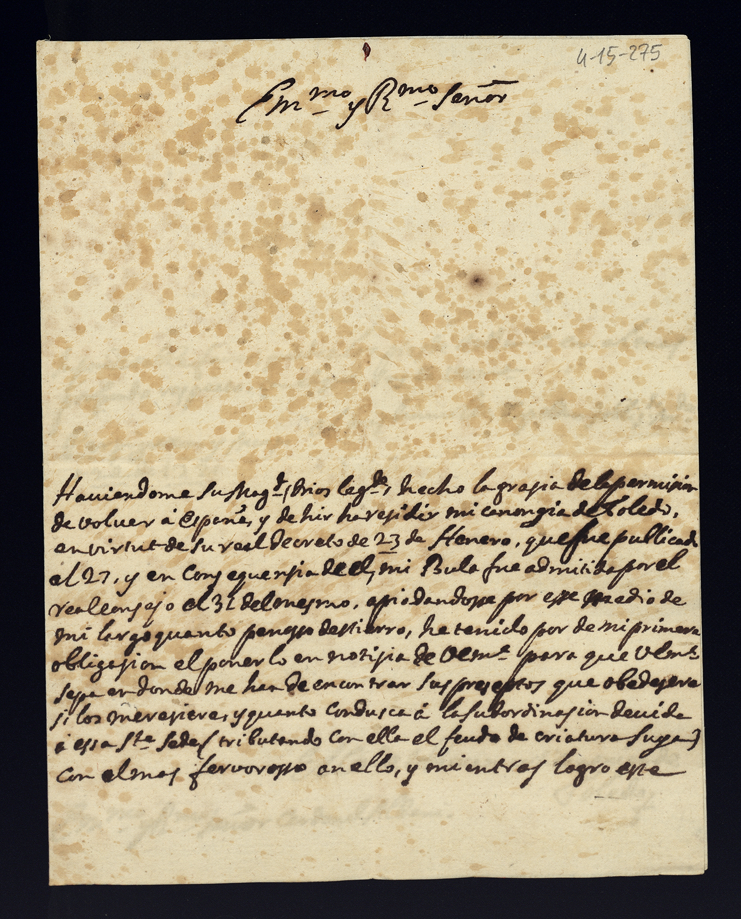 4-15-275
Em.mo y R.mo Señor
Haviendome Su Mag.d (Dios le g.de) hecho la grasia de la permision
de volver á España, y de hir ha residir mi canongia de Toledo,
en virtut de su real decreto de 23 de Henero, que fue publicado
el 27, y en consequensia de el, mi Bula fue admitida por el
real consejo el 31 del mesmo, apiadandosse por esse medio de
mi largo quanto penosso destierro, he tenido por de mi primera
obligasion el ponerlo en notisia de V Em.a para que V Em.a
sepa en donde me han de encontrar sus preseptos que obedesere
si los meresiere, y quanto condusca á la subordinasion devida
á essa S.ta Sede (tributando con ella el feudo de criatura suya)
con el mas fervorosso anello, y mientras logro este